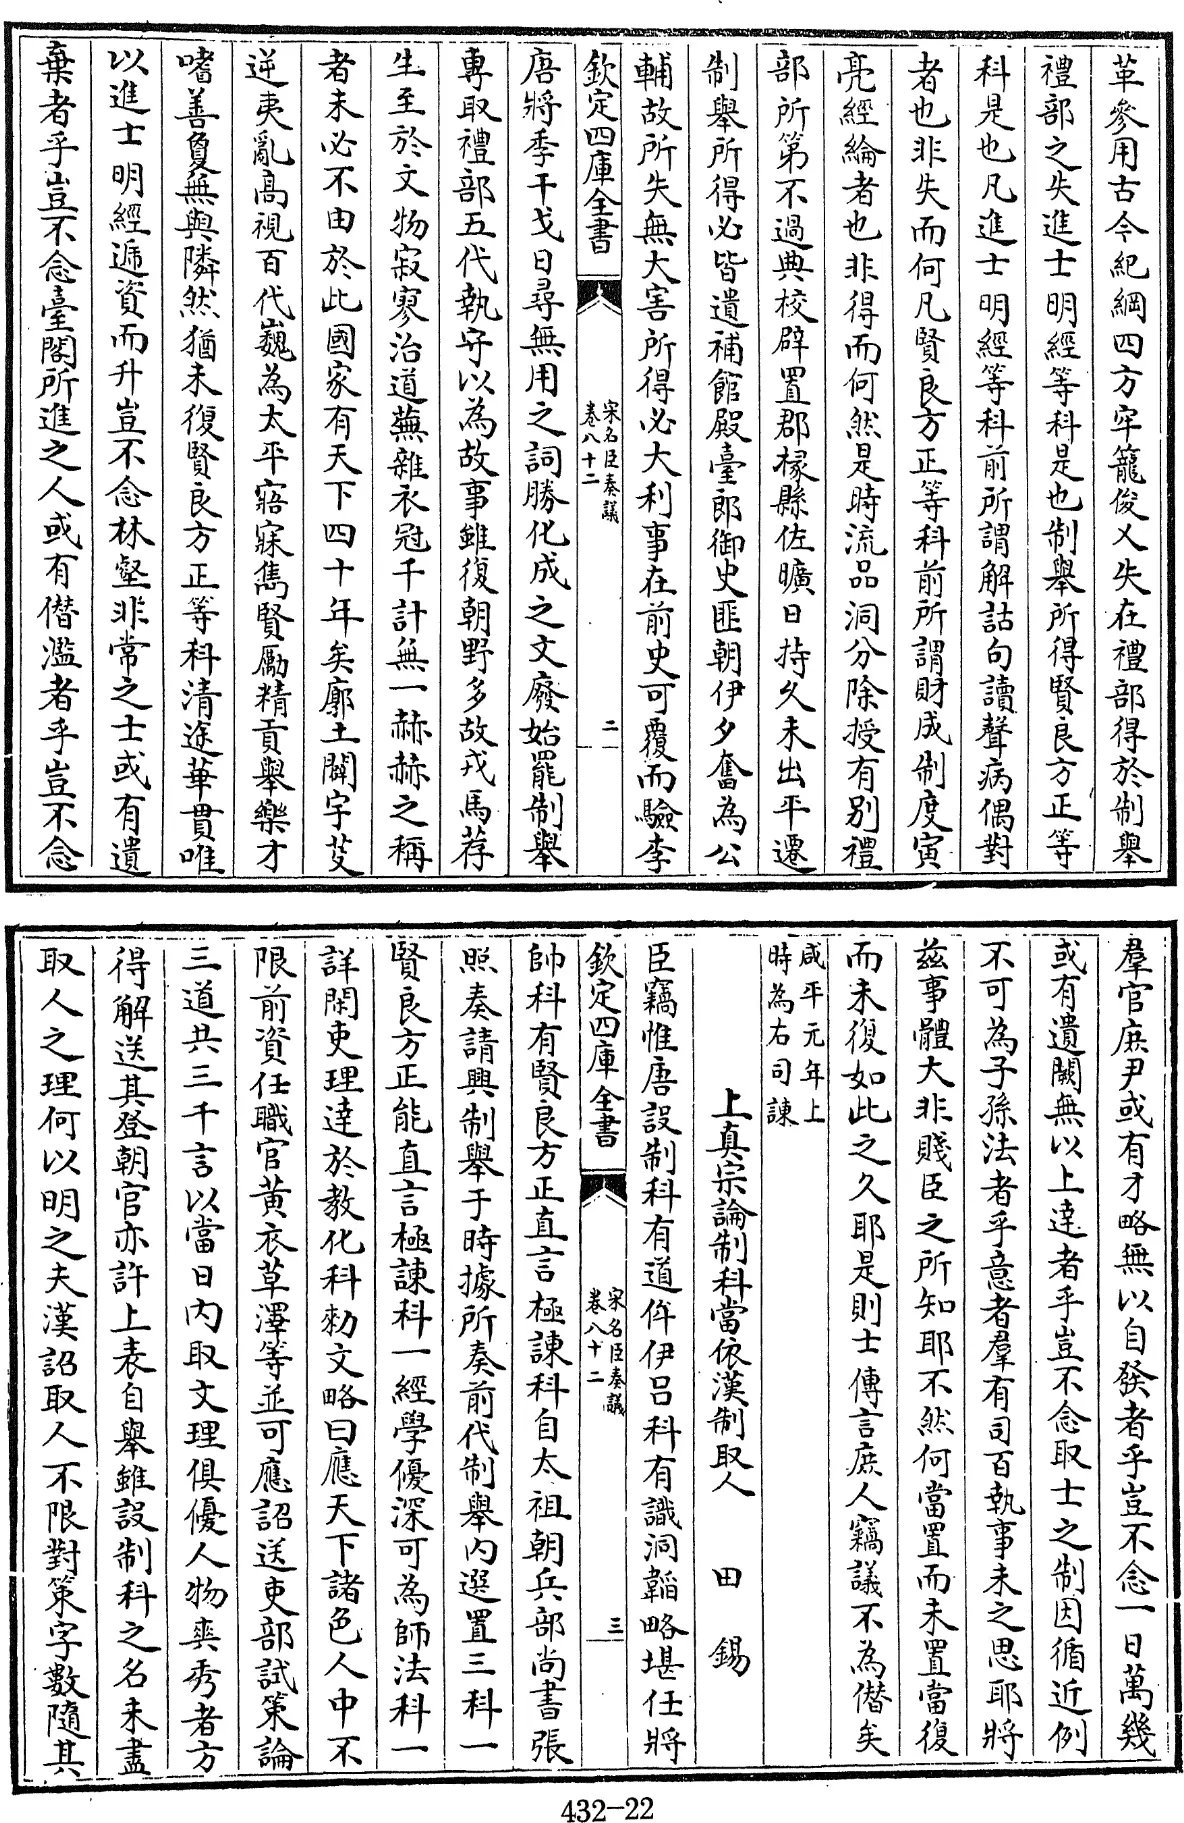 革參用古今紀綱四方牢籠俊乂失在禮部得於制舉
禮部之失進士明經等科是也制舉所得賢良方正等
科是也凡進士明經等科前所謂解詁句讀聲病偶對
者也非失而何凡賢良方正等科前所謂財成制度寅
亮經綸者也非得而何然是時流品洞分除授有别禮
部所第不過典校辟置郡椽縣佐曠日持久未出平遷
制舉所得必皆遺補館殿臺郎御史匪朝伊夕奮為公
輔故所失無大害所得必大利事在前史可覆而驗李
欽定四庫全書
宋名臣奏議
卷八十二
二
唐將季干戈日尋無用之詞勝化成之文廢始罷制舉
專取禮部五代執守以為故事雖復朝野多故戎馬荐
生至於文物寂寥治道蕪雜衣冠千計無一赫赫之稱
者未必不由於此國家有天下四十年矣廓土闢宇芟
逆夷亂高視百代巍為太平寤寐雋賢勵精貢舉樂才
嗜善敻無與隣然猶未復賢良方正等科清途華貫唯
以進士明經遞資而升豈不念林壑非常之士或有遺
棄者乎豈不念臺閣所進之人或有僭濫者乎豈不念
羣官庶尹或有才略無以自發者乎豈不念一日萬幾
或有遺闕無以上達者乎豈不念取士之制因循近例
不可為子孫法者乎意者羣有司百執事未之思耶將
茲事體大非賤臣之所知耶不然何當置而未置當復
而未復如此之久耶是則士傳言庶人竊議不為僭矣
咸平元年上
時為右司諫
上真宗論制科當依漢制取人 田 錫
臣竊惟唐設制科有道侔伊呂科有識洞韜略堪任將
欽定四庫全書
宋名臣奏議
卷八十二
三
帥科有賢良方正直言極諫科自太祖朝兵部尚書張
照奏請興制舉于時據所奏前代制舉内選置三科一
賢良方正能直言極諫科一經學優深可為師法科一
詳閑吏理達於教化科勑文略曰應天下諸色人中不
限前資任職官黄衣草澤等並可應詔送吏部試策論
三道共三千言以當日内取文理俱優人物爽秀者方
得解送其登朝官亦許上表自舉雖設制科之名未盡
取人之理何以明之夫漢詔取人不限對策字數隨其
432-22